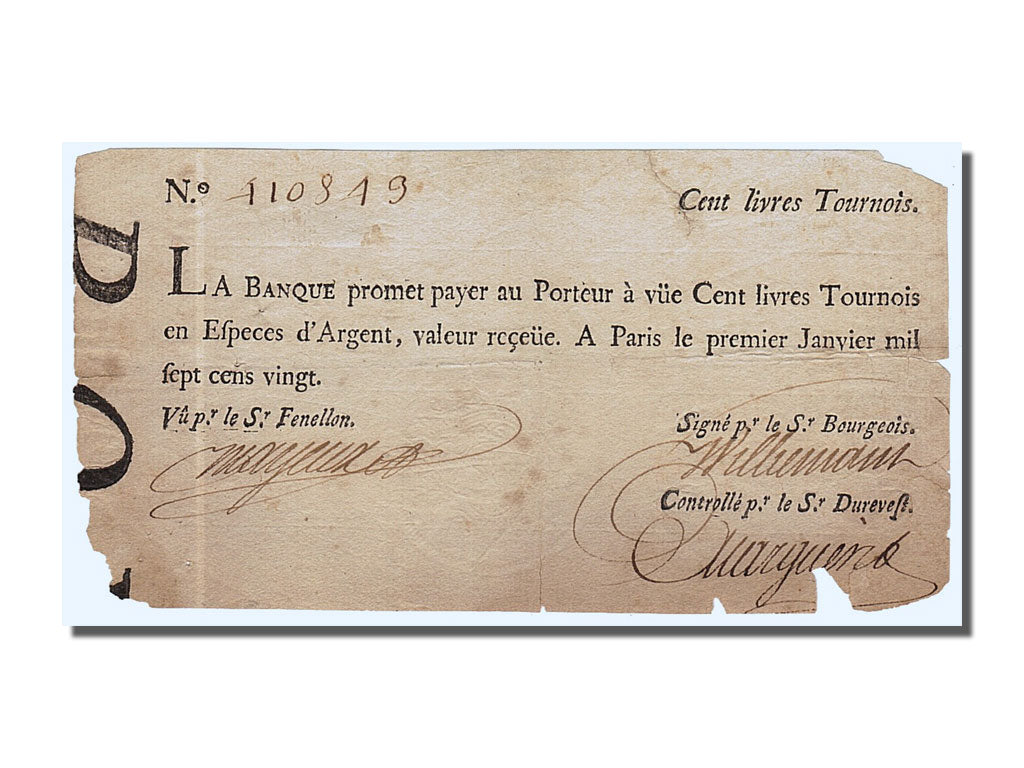 N.º 110849
Cent livres Tournois.
LA BANQUE promet payer au Porteur à vüe Cent livres Tournois
en Eſpeces d'Argent, valeur reçeüe. A Paris le premier Janvier mil
ſept cens vingt.
Vû p.r le S.r Fenellon.
Signé p.r le S.r Bourgeois.
Controllé p.r le S.r Dureveſt.